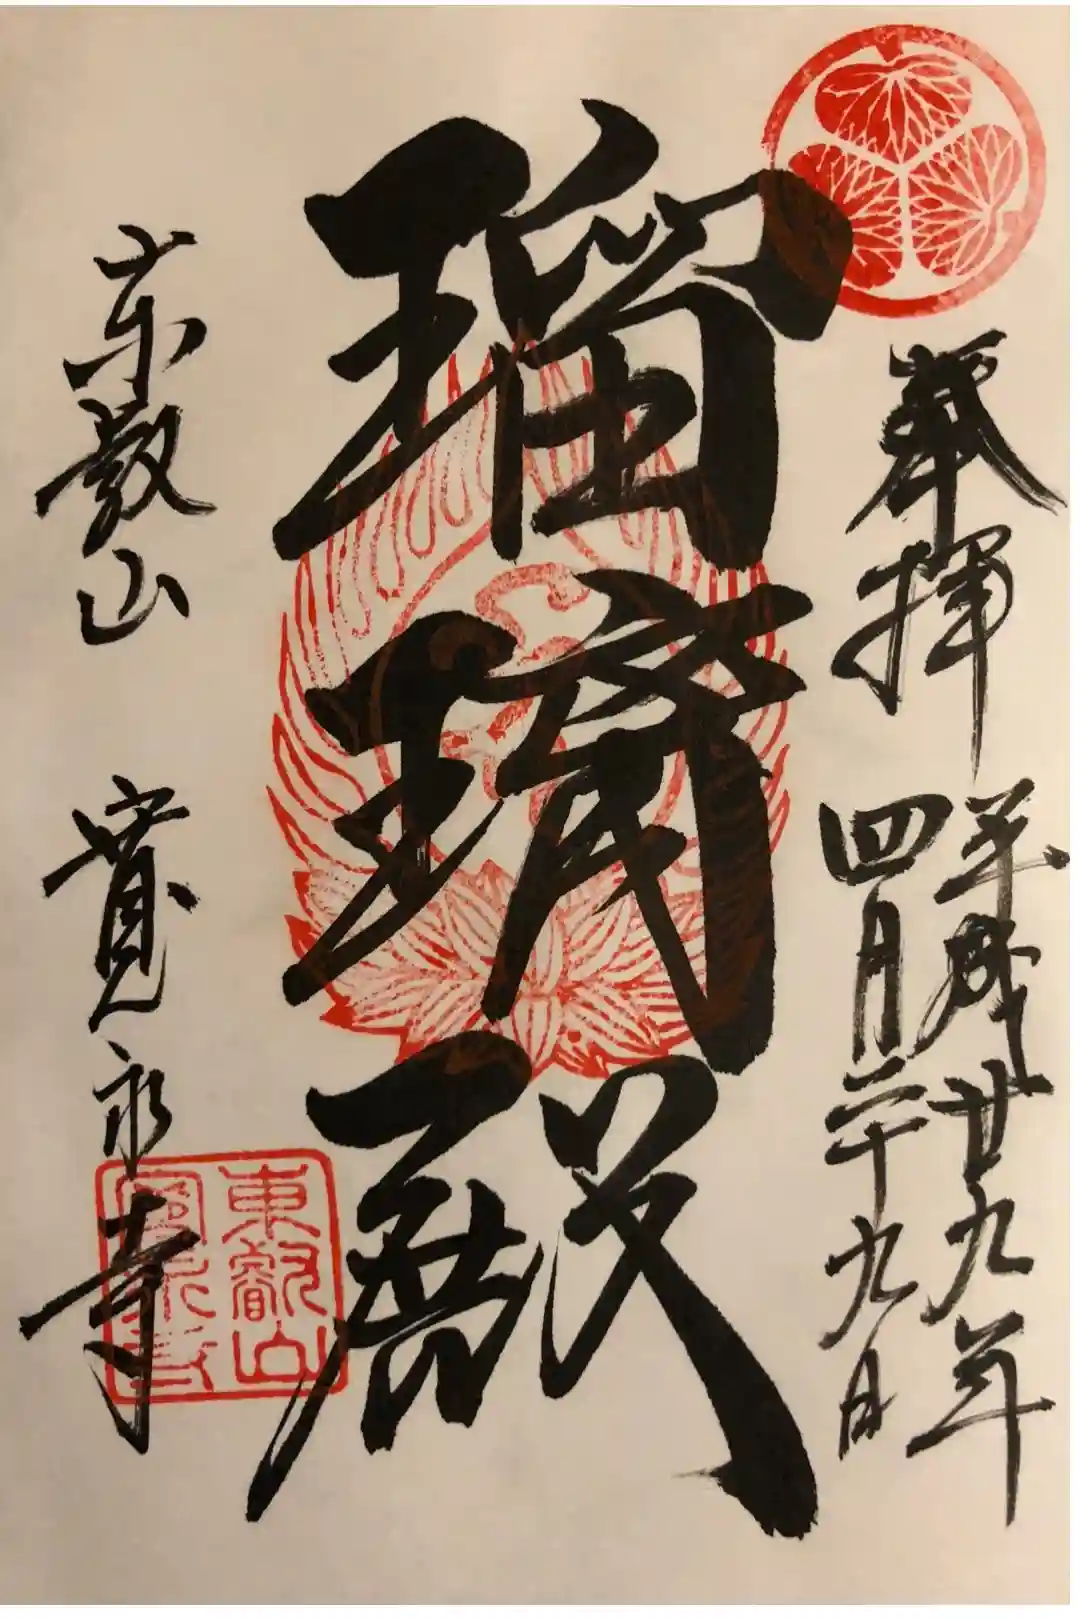 奉拝
平成廿九年
四月二十九日
瑠璃殿
東叡山 寛永寺
東叡山
寛永寺